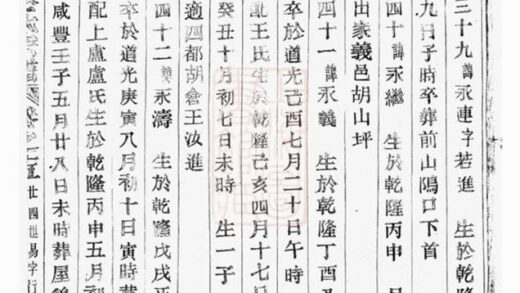 三十九 諱永連字若進 生於乾隆
九日子時卒葬前山隝口下首
四十 諱永繼 生於乾隆丙申
田家義邑胡山坪
四十一 諱永義 生於乾隆丁酉
卒於道光己酉七月二十日午時
配王氏生於乾隆己亥四月十七日
癸丑十月初七日未時 生一子
適四都胡倉王汝進
四十二 諱永濤 生於乾隆戊戌
卒於道光庚寅八月初十日寅時葬
配上盧盧氏生於乾隆丙申五月初
咸豐壬子五月廿八日未時葬屋
廿四世易字行